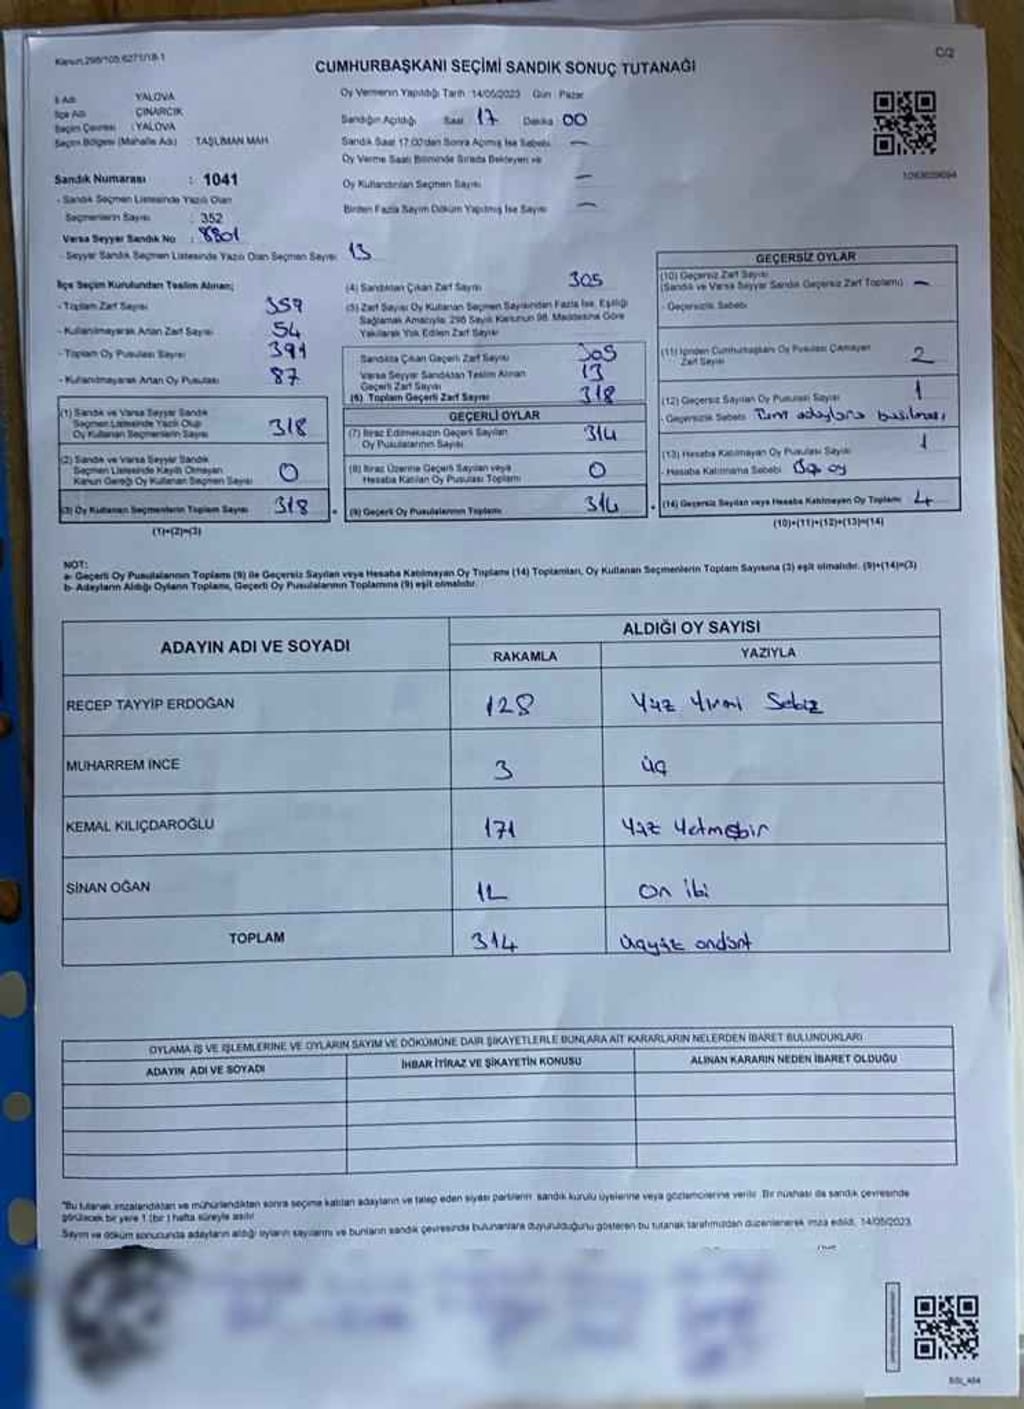 Kanun:298/105;6271/18-1
C/2
CUMHURBAŞKANI SEÇİMİ SANDIK SONUÇ TUTANAĞI
İl Adı YALOVA
İlçe Adı ÇINARCIK
Seçim Çevresi : YALOVA
Seçim Bölgesi (Mahalle Adı) : TAŞLIMAN MAH
Sandık Numarası : 1041
- Sandık Seçmen Listesinde Yazılı Olan
Seçmenlerin Sayısı : 352
Varsa Seyyar Sandık No : 8801
- Seyyar Sandık Seçmen Listesinde Yazılı Olan Seçmen Sayısı 13
Oy Vermenin Yapıldığı Tarih :14/05/2023 Gün : Pazar
Sandığın Açıldığı Saat 17 Dakika 00
Sandık Saat 17:00'den Sonra Açılmış İse Sebebi —
Oy Verme Saati Bitiminde Sırada Bekleyen ve
Oy Kullandırılan Seçmen Sayısı —
Birden Fazla Sayım Döküm Yapılmış İse Sayısı —
İlçe Seçim Kurulundan Teslim Alınan;
- Toplam Zarf Sayısı 359
- Kullanılmayarak Artan Zarf Sayısı 54
- Toplam Oy Pusulası Sayısı 391
- Kullanılmayarak Artan Oy Pusulası 87
(1) Sandık ve Varsa Seyyar Sandık
Seçmen Listesinde Yazılı Olup
Oy Kullanan Seçmenlerin Sayısı 318
(2) Sandık ve Varsa Seyyar Sandık
Seçmen Listesinde Kayıtlı Olmayan
Kanun Gereği Oy Kullanan Seçmen Sayısı 0
(3) Oy Kullanan Seçmenlerin Toplam Sayısı 318
(1)+(2)=(3)
(4) Sandıktan Çıkan Zarf Sayısı 305
(5) Zarf Sayısı Oy Kullanan Seçmen Sayısından Fazla İse, Eşitliği
Sağlamak Amacıyla, 298 Sayılı Kanunun 98. Maddesine Göre
Yakılarak Yok Edilen Zarf Sayısı
Sandıkta Çıkan Geçerli Zarf Sayısı 305
Varsa Seyyar Sandıktan Teslim Alınan
Geçerli Zarf Sayısı 13
(6) Toplam Geçerli Zarf Sayısı 318
GEÇERLİ OYLAR
(7) İtiraz Edilmeksizin Geçerli Sayılan
Oy Pusulalarının Sayısı 314
(8) İtiraz Üzerine Geçerli Sayılan veya
Hesaba Katılan Oy Pusulası Toplamı 0
(9) Geçerli Oy Pusulalarının Toplamı 314
GEÇERSİZ OYLAR
(10) Geçersiz Zarf Sayısı
(Sandık ve Varsa Seyyar Sandık Geçersiz Zarf Toplamı) —
- Geçersizlik Sebebi
(11) İçinden Cumhurbaşkanı Oy Pusulası Çıkmayan
Zarf Sayısı 2
(12) Geçersiz Sayılan Oy Pusulası Sayısı 1
- Geçersizlik Sebebi Tüm adaylara basılması
(13) Hesaba Katılmayan Oy Pusulası Sayısı 1
- Hesaba Katılmama Sebebi Boş oy
(14) Geçersiz Sayılan veya Hesaba Katılmayan Oy Toplamı 4
(10)+(11)+(12)+(13)=(14)
NOT:
a- Geçerli Oy Pusulalarının Toplamı (9) ile Geçersiz Sayılan veya Hesaba Katılmayan Oy Toplamı (14) Toplamları, Oy Kullanan Seçmenlerin Toplam Sayısına (3) eşit olmalıdır. (9)+(14)=(3)
b- Adayların Aldığı Oyların Toplamı, Geçerli Oy Pusulalarının Toplamına (9) eşit olmalıdır.
ADAYIN ADI VE SOYADI ALDIĞI OY SAYISI
RAKAMLA YAZIYLA
RECEP TAYYİP ERDOĞAN 128 Yüz Yirmi Sekiz
MUHARREM İNCE 3 üç
KEMAL KILIÇDAROĞLU 171 Yüz Yetmişbir
SİNAN OĞAN 12 on iki
TOPLAM 314 üçyüz ondört
OYLAMA İŞ VE İŞLEMLERİNE VE OYLARIN SAYIM VE DÖKÜMÜNE DAİR ŞİKAYETLERLE BUNLARA AİT KARARLARIN NELERDEN İBARET BULUNDUKLARI
ADAYIN ADI VE SOYADI İHBAR İTİRAZ VE ŞİKAYETİN KONUSU ALINAN KARARIN NEDEN İBARET OLDUĞU
*Bu tutanak imzalandıktan ve mühürlendikten sonra seçime katılan adayların ve talep eden siyasi partilerin sandık kurulu üyelerine veya gözlemcilerine verilir. Bir nüshası da sandık çevresinde
görülecek bir yere 1 (bir ) hafta süreyle asılır.
Sayım ve döküm sonucunda adayların aldığı oyların sayılarını ve bunların sandık çevresinde bulunanlara duyurulduğunu gösteren bu tutanak tarafımızdan düzenlenerek imza edildi. 14/05/2023